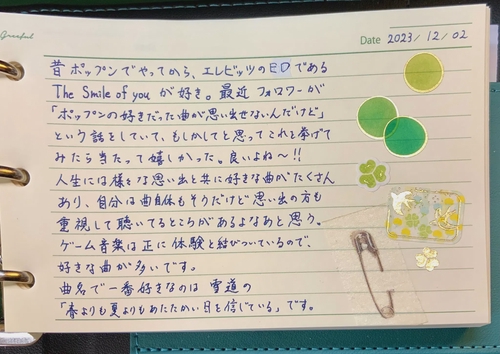 Greeful
Date 2023/12/02
昔ポップンでやってから、エレビッツのEDである
The Smile of you が好き。最近フォロワーが
「ポップンの好きだった曲が思い出せないんだけど」
という話をしていて、もしかしてと思ってこれを挙げて
みたら当たって嬉しかった。良いよね〜!!
人生には様々な思い出と共に好きな曲がたくさん
あり、自分は曲自体もそうだけど思い出の方も
重視して聴いてるところがあるよなあと思う。
ゲーム音楽は正に体験と結びついているので、
好きな曲が多いです。
曲名で一番好きなのは 雪道の
「春よりも夏よりもあたたかい日を信じている」です。